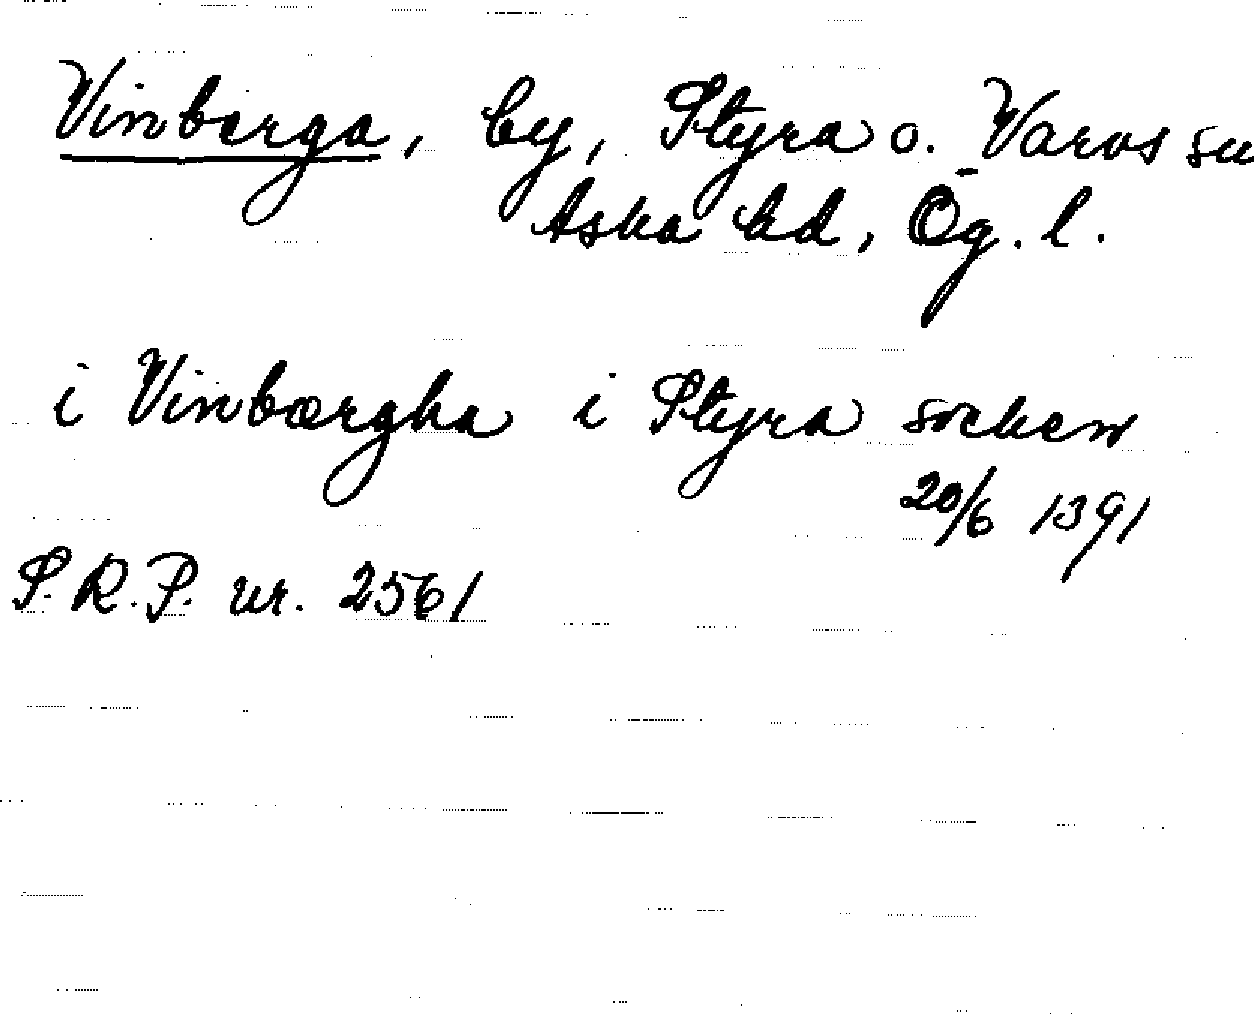 Vinberga, by, Styra o. Varvs sn
Aska hd, Ög. l.
i Vinbærgha i Styra sokcen
20/6 1391
S.R.P. nr. 2561